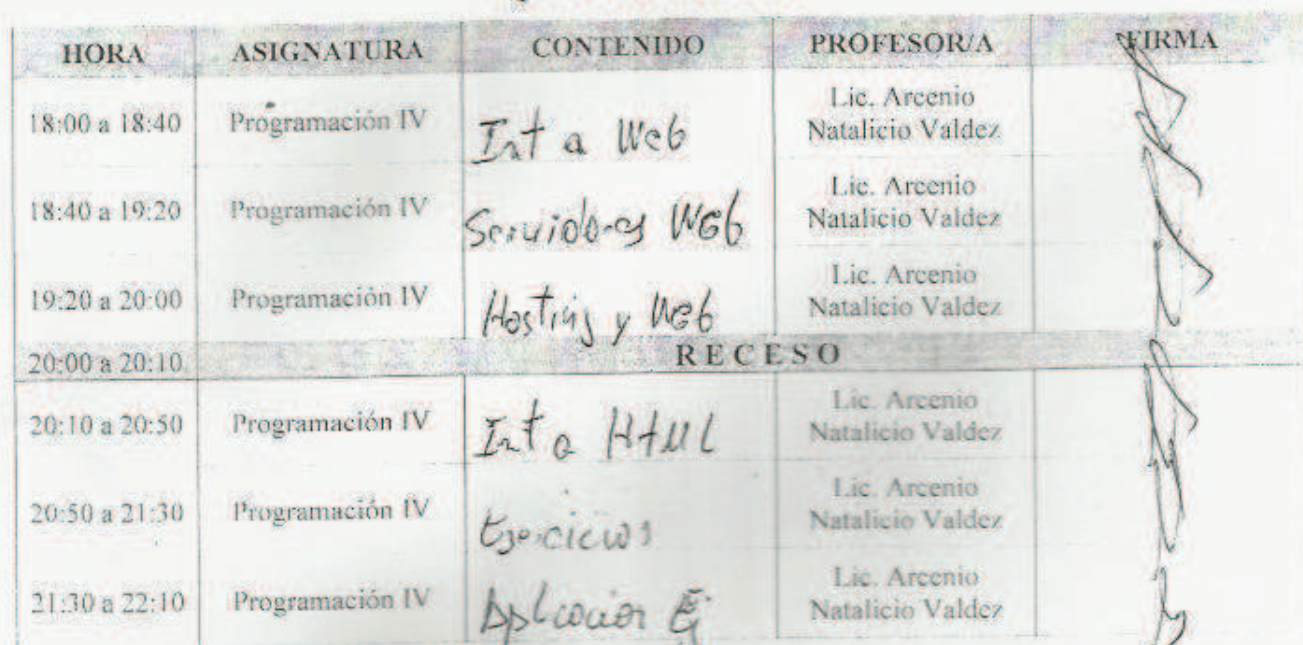 HORA ASIGNATURA CONTENIDO PROFESOR/A FIRMA
18:00 a 18:40 Programación IV Int a Web Lic. Arcenio
Natalicio Valdez
18:40 a 19:20 Programación IV Servidores Web Lic. Arcenio
Natalicio Valdez
19:20 a 20:00 Programación IV Hosting y Web Lic. Arcenio
Natalicio Valdez
20:00 a 20:10 RECESO
20:10 a 20:50 Programación IV Int a HTML Lic. Arcenio
Natalicio Valdez
20:50 a 21:30 Programación IV Ejercicios Lic. Arcenio
Natalicio Valdez
21:30 a 22:10 Programación IV Aplicacion Ej Lic. Arcenio
Natalicio Valdez